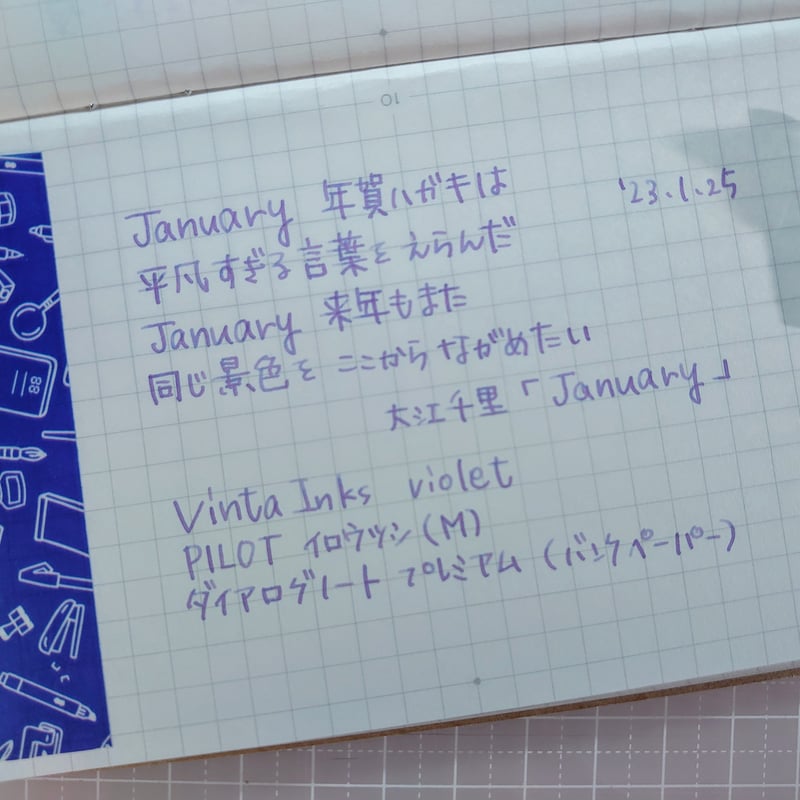 10
'23.1.25
January 年賀ハガキは
平凡すぎる言葉をえらんだ
January 来年もまた
同じ景色を ここから ながめたい
大江千里「January」
Vinta Inks violet
PILOT イロウツシ(M)
ダイアログノート プレミアム (バンクペーパー)